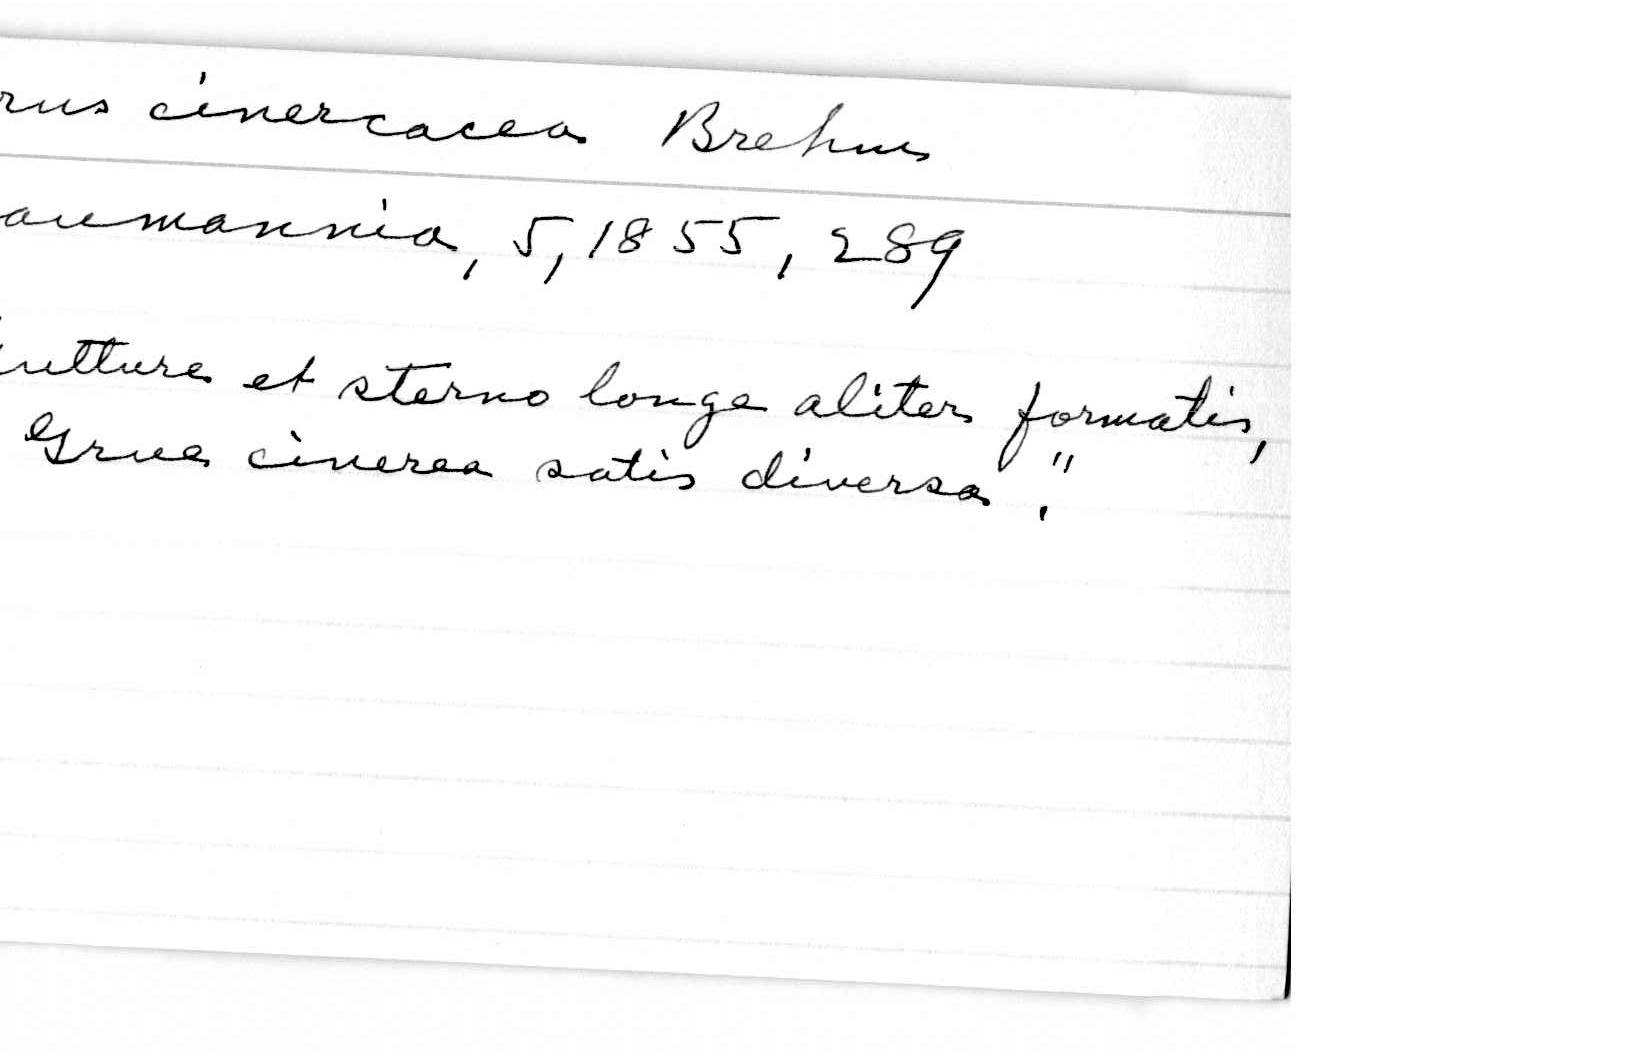 rus cinercacea Brehm
aumannia, 5, 1855, 289
utture et sterno longe aliter formatis,
Grue cinerea satis diversa".